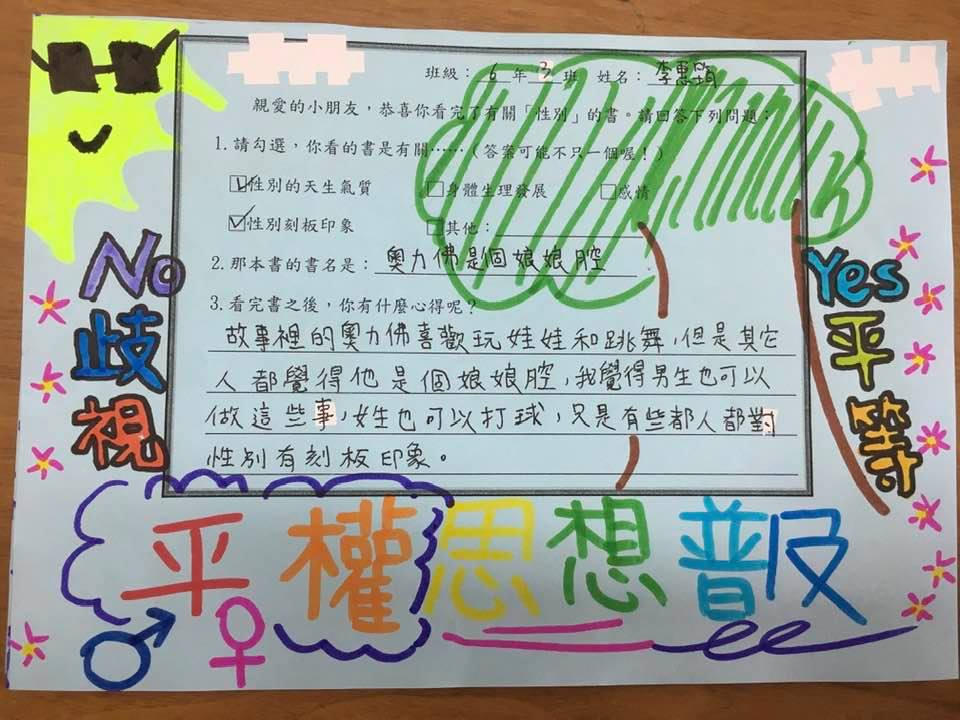 班級：6年3班 姓名：李惠筠
親愛的小朋友，恭喜你看完了有關「性別」的書。請回答下列問題：
1.請勾選，你看的書是有關……（答案可能不只一個喔！）
☑性別的天生氣質 □身體生理發展 □感情
☑性別刻板印象 □其他：
2.那本書的書名是：奧力佛是個娘娘腔
3.看完書之後，你有什麼心得呢？
故事裡的奧力佛喜歡玩娃娃和跳舞，但是其它
人都覺得他是個娘娘腔，我覺得男生也可以
做這些事，女生也可以打球，只是有些都人都對
性別有刻板印象。
No
歧
視
Yes
平
等
平權思想普及